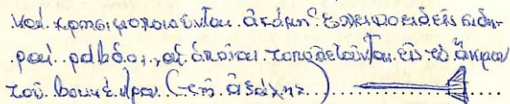 καί χρησιμοποιοῦνται ἀκόμη ἑλικοειδεῖς σιδη-
ραῖ ράβδοι, αἱ ὁποῖαι τοποθετοῦνται εἰς τό ἄκρον
τοῦ (τῆς